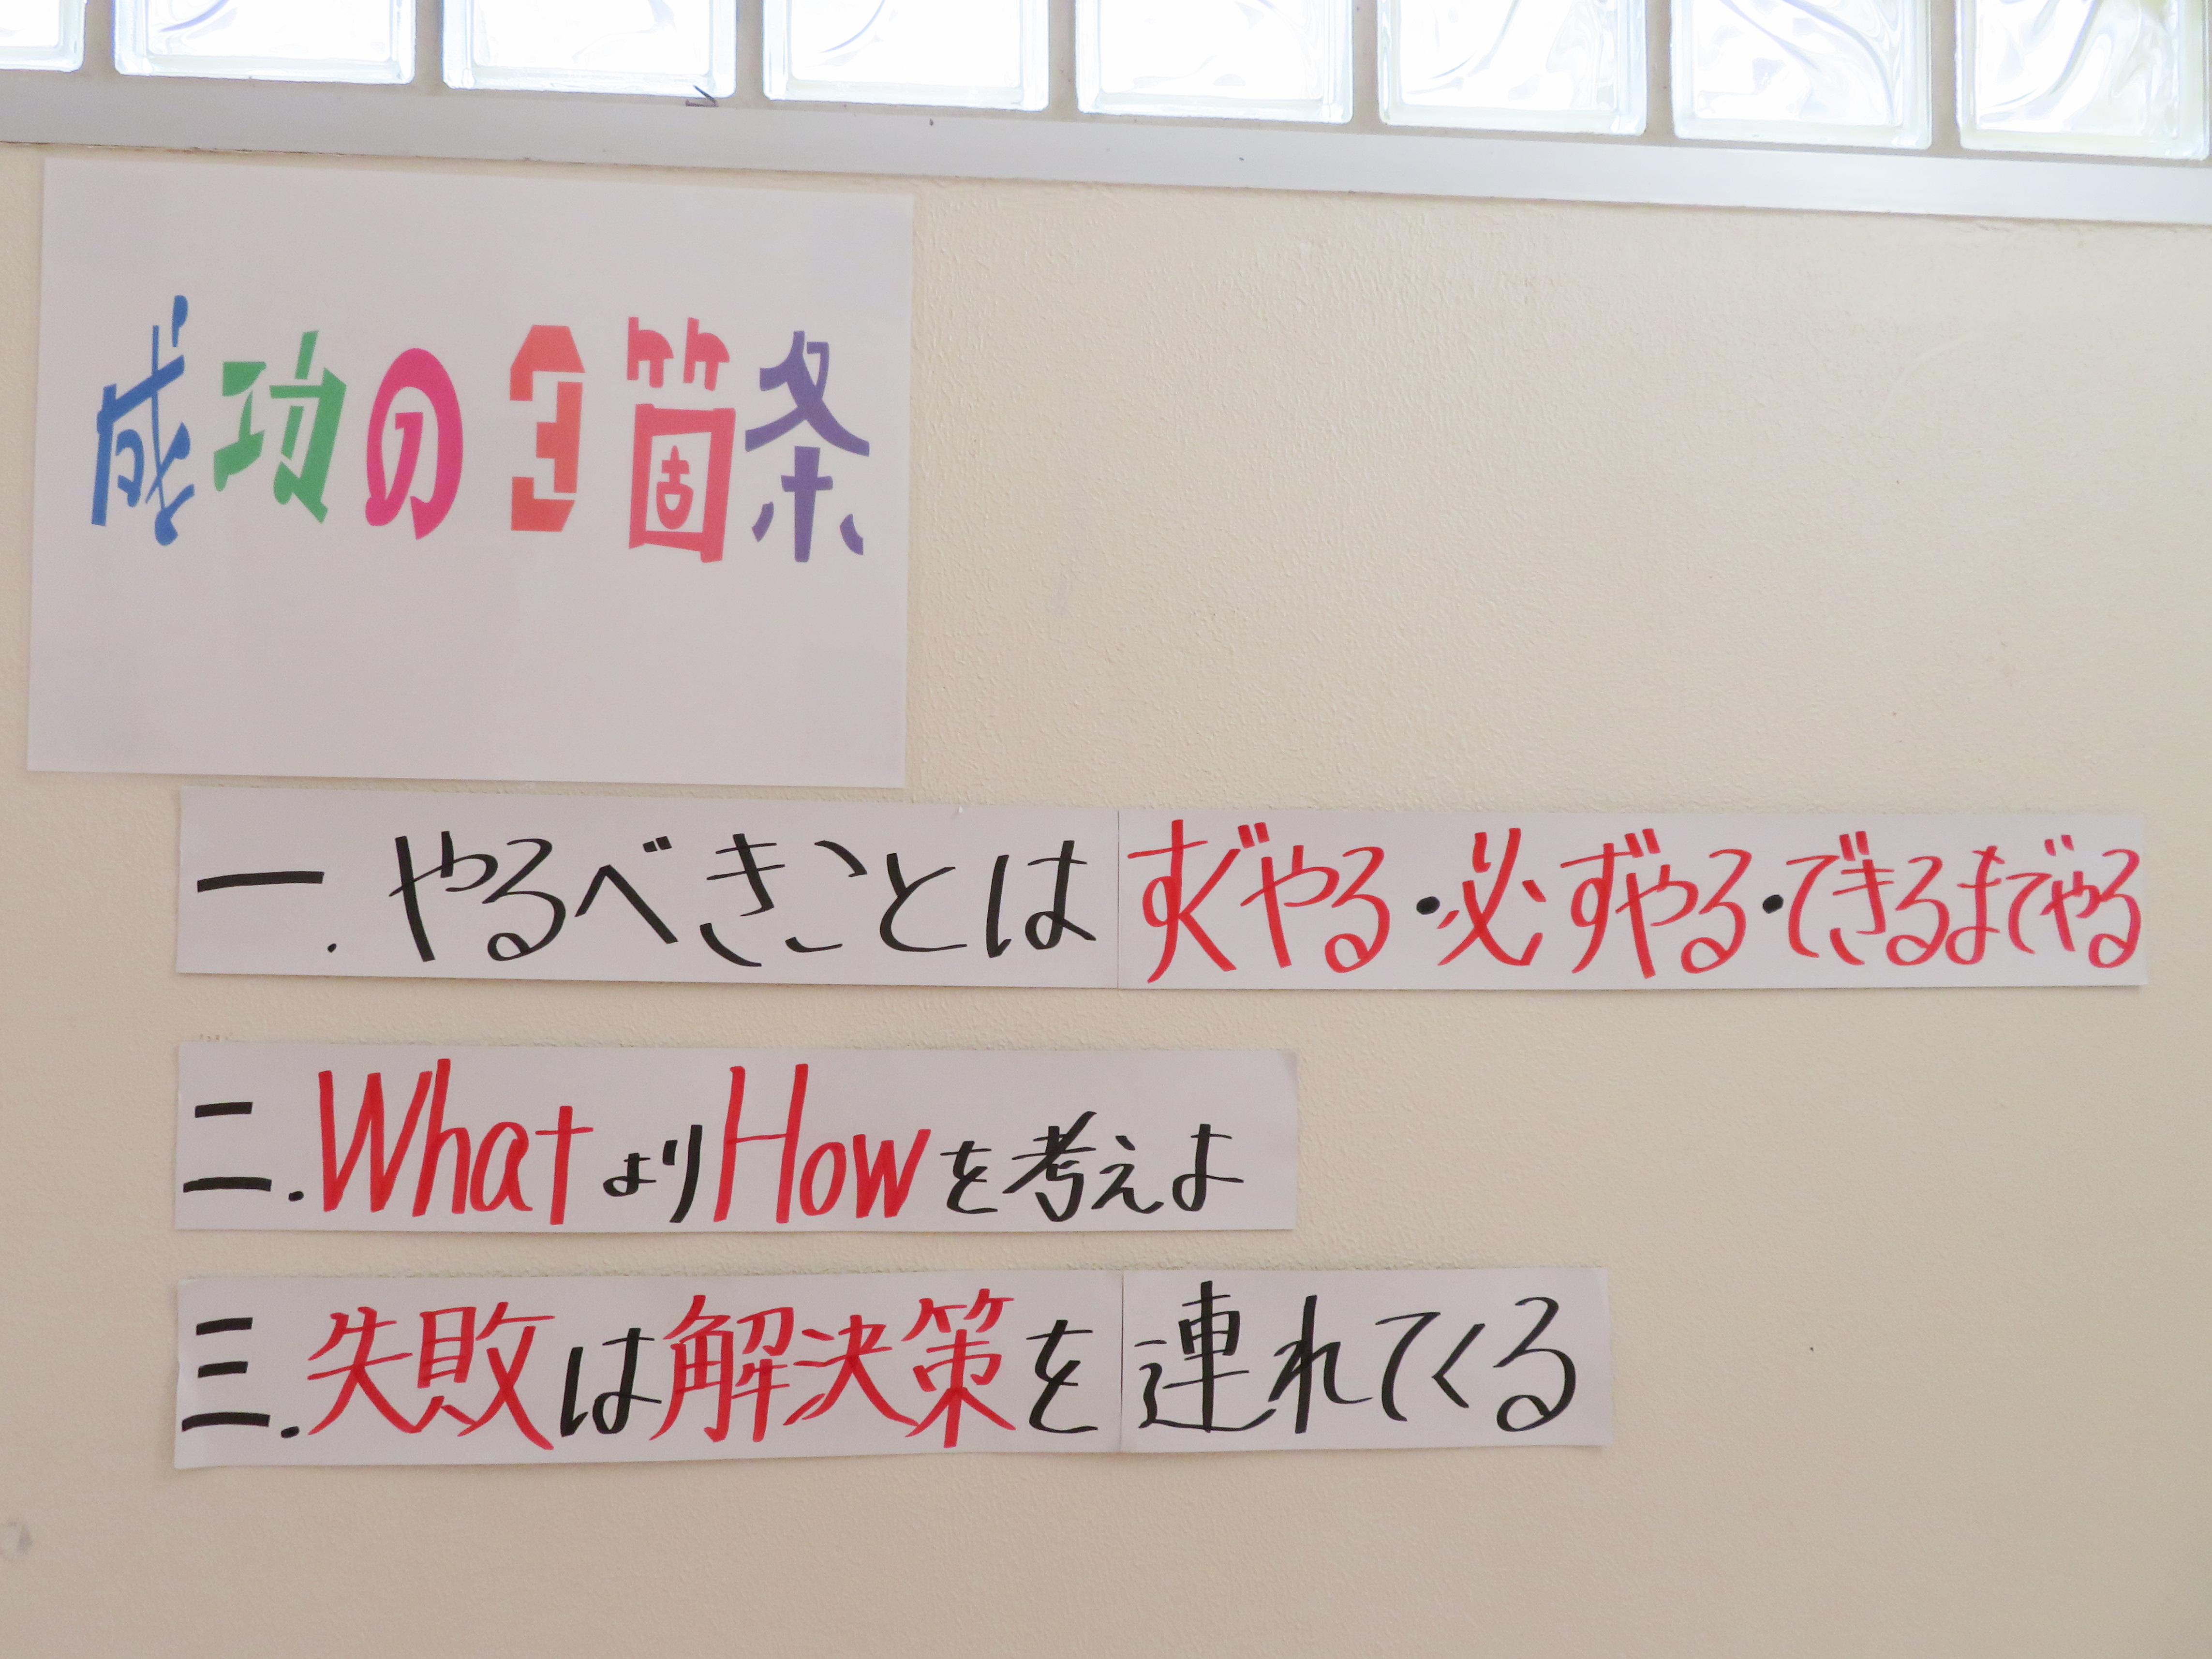 成功の3箇条
一.やるべきことはすぐやる・必ずやる・できるまでやる
二.WhatよりHowを考えよ
三.失敗は解決策を連れてくる